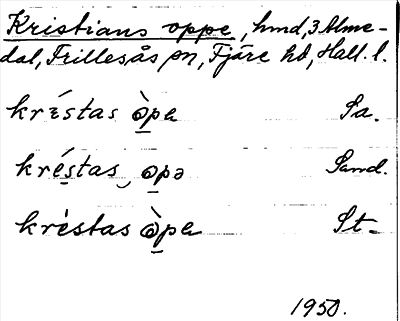 Kristians oppe, hmd, 3 Alme-
dal, Frillesås sn, Fjäre hd, Hall. l.
kréstas òpe Sa.
kréstas opə Sand.
krèstas òpe St-
1950.